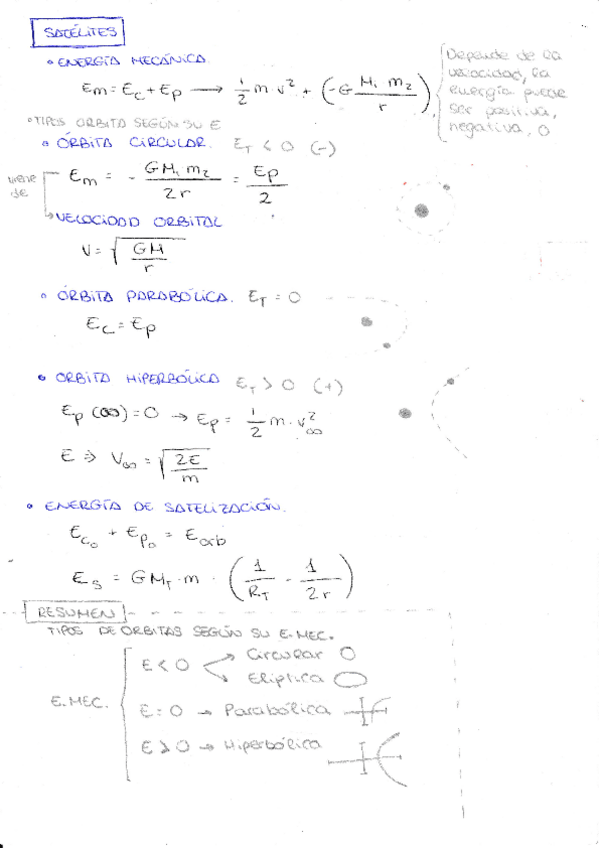 SATÉLITES
• ENERGÍA MECÁNICA.
Em = Ec + Ep ⟶ 1/2 m v² + (-G M₁ m₂ / r)
Depende de la
velocidad, la
energía puede
ser positiva,
negativa, 0
• TIPOS ORBITA SEGÚN SU E
• ÓRBITA CIRCULAR. E_T < 0 (-)
viene de
Em = - GM₁ m₂ / 2r = Ep / 2
VELOCIDAD ORBITAL
V = √(GM / r)
• ÓRBITA PARABÓLICA. E_T = 0
Ec = Ep
• ORBITA HIPERBÓLICA E_T > 0 (+)
Ep (∞) = 0 → Ep = 1/2 m · v∞²
E ⇒ V∞ = √(2E / m)
• ENERGÍA DE SATELIZACIÓN.
Ec₀ + Ep₀ = Eorb
Es = GM_T · m · (1/R_T - 1/2r)
RESUMEN
TIPOS DE ORBITAS SEGÚN SU E. MEC.
E. MEC.
E < 0
Circular
Elíptica
E = 0 → Parabólica
E > 0 → Hiperbólica